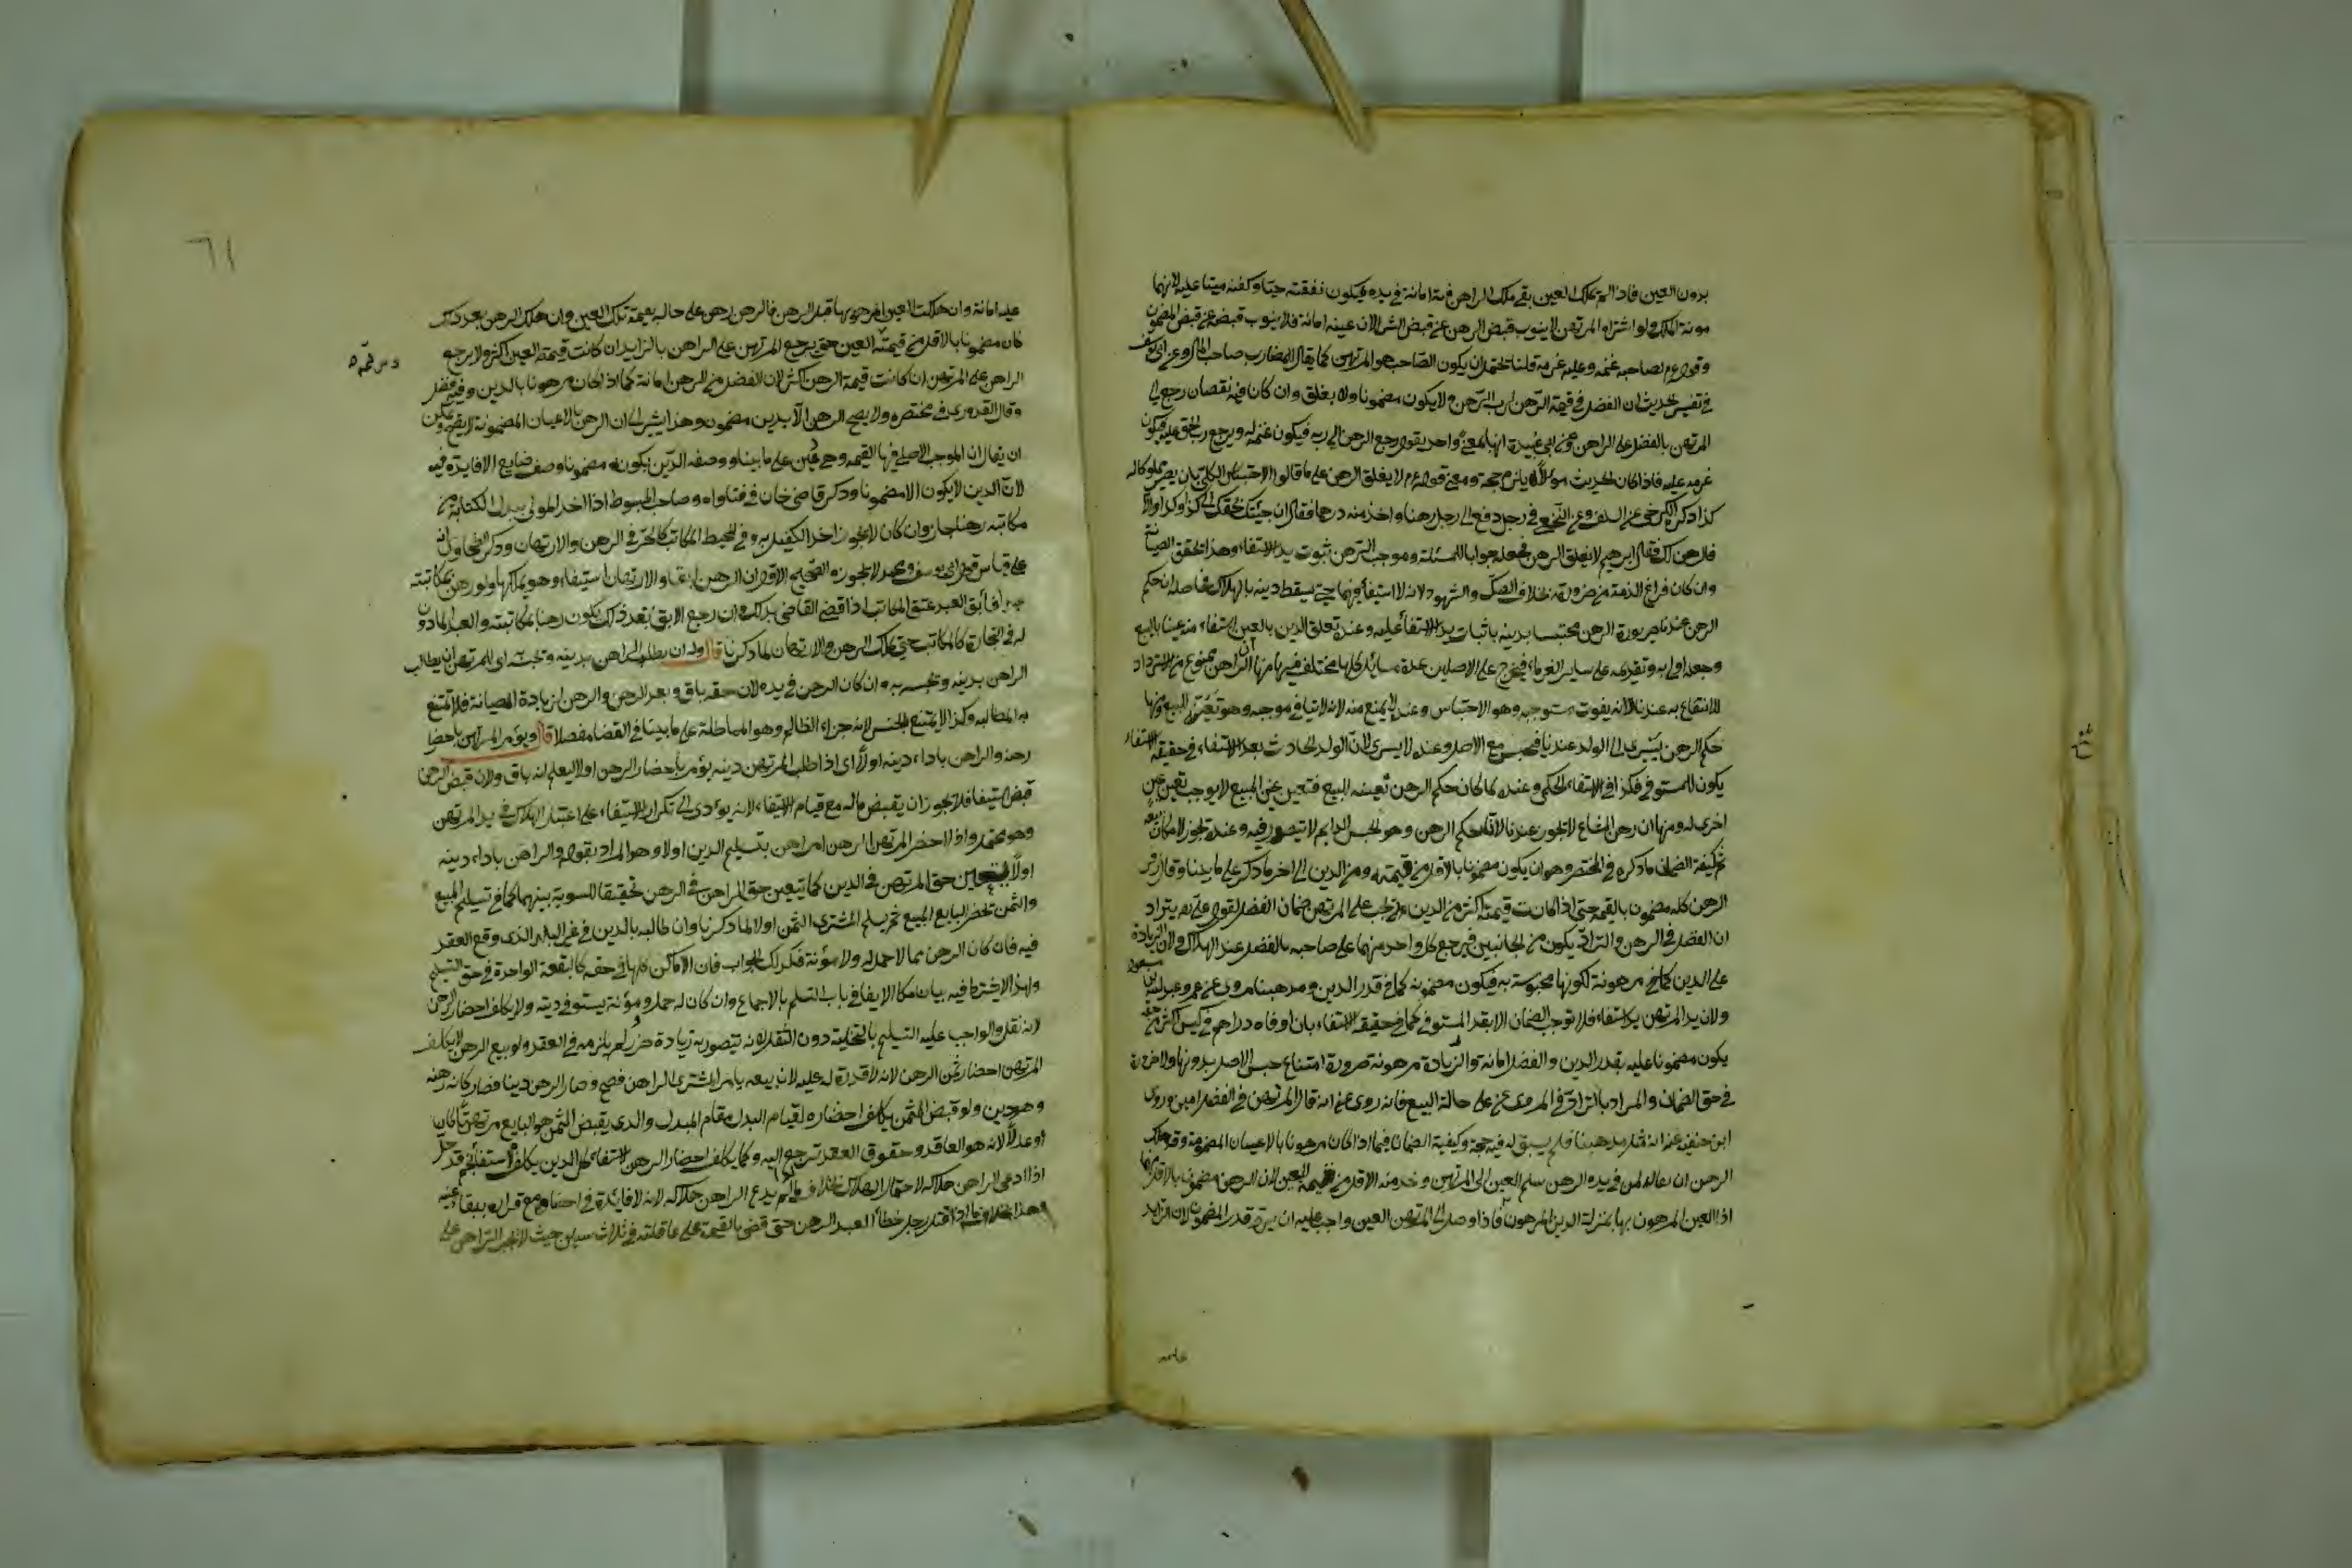 بدون العين فاذا لم يملك العين بقى ملك الراهن فيه امانة في يده فيكون نفقته حيّا وكفنه ميتا عليه لانهما
مونة الملك ولو اشتراه المرتهن لا ينوب قبض الرهن عن قبض الشرا لان عينه امانة فلا ينوب قبضه عن قبض المضمون
وقوله عم لصاحبه غنمه وعليه غرمه قلنا يحتمل ان يكون الصاحب هو المرتهن كما يقال للمضارب صاحب المال وعن ابي يوسف
في تفسير الحديث ان الفضل في قيمة الرهن لرب الرهن ولا يكون مضمونا ولا يغلق وان كان فيه نقصان رجع
المرتهن بالفضل على الراهن وعن ابي عبيدة انهما بمعنى واحد يقول رجع الرهن الى ربه فيكون غنمه له ويرجع رب الحق عليه فيكون
غرمه عليه فاذا كان الحديث مؤولا لا يلزم حجة ومعنى قوله عم لا يغلق الرهن على ما قالوا الاحتباس الكلي بان يصير مملوكا له
كذا ذكر الكرخي عن السلف وعن النخعي في رجل دفع الى رجل رهنا واخذ منه درهما فقال ان جئتك بحقك الى كذا وكذا والا
فالرهن لك فقال ابرهيم لا يغلق الرهن فجعله جوابا للمسئلة وموجب الرهن ثبوت يد الاستيفاء وهذا يحقق الصيانة
وان كان فراغ الذمة من ضرورته بخلاف الصك والشهود لانه لا استيفأ فيهما حتى يسقط دينه بالهلاك فحاصله ان حكم
الرهن عندنا صيرورة الرهن محتبسا بدينه باثبات يد الاستيفأ عليه وعنده تعلق الدين بالعين استيفاء منه عينا بالبيع
وجعله اولى به وتقديمه على ساير الغرماء فيخرج على الاصلين عدة مسائل كلها مختلف فيها منها ان الراهن ممنوع من الاسترداد
للانتفاع به عندنا لانه يفوت موجبه وهو الاحتباس وعنده لا يمنع منه لانه لا ينافي موجبه وهو تعينه للبيع ومنها
حكم الرهن يسرى الى الولد عندنا فيحبس مع الاصل وعنده لا يسرى لانّ الولد الحادث بعد الاستيفاء في حقيقة الاستيفاء
يكون للمستوفي فكذا في الاستيفاء الحكمي وعنده لما كان حكم الرهن تعينه للبيع فتعين عين للبيع لا يوجب تعين عين
اخرى له ومنها ان رهن المشاع لا يجوز عندنا لان حكم الرهن وهو الحبس الدايم لا يتصور فيه وعنده يجوز لامكان بيعه
ثم كيفية الضمان ما ذكره في المختصر وهو ان يكون مضمونا بالاقل من قيمته ومن الدين الى اخر ما ذكر على ما بينا وقال زفر
الرهن كله مضمون بالقيمة حتى اذا كانت قيمته اكثر من الدين يجب على المرتهن ضمان الفضل لقول على رض يتراد
ان الفضل في الرهن والتراد يكون من الجانبين فيرجع كل واحد منهما على صاحبه بالفضل عند الهلاك ولان الزيادة
على الدين مرهونة لكونها محبوسة به فيكون مضمونة كما في قدر الدين ومذهبنا مروي عن عمر وعبد الله بن مسعود
ولان يد المرتهن يد استيفاء فلا توجب الضمان الا بقدر المستوفي كما في حقيقة الاستيفاء بان اوفاه دراهم في كيس اكثر من حقه
يكون مضمونا عليه بقدر الدين والفضل امانة والزيادة مرهونة ضرورة امتناع حبس الاصل بدونها ولا ضرورة
في حق الضمان والمراد بالتراد في المروى عن على حالة البيع فانه روى عنه انه قال المرتهن في الفضل امين وروى
ابن حنفية عنه انه مثل مذهبنا فلم يبق له فيه حجة وكيفية الضمان فيما اذا كان مرهونا بالاعيان المضمونة وقد هلك
الرهن ان يقال لمن في يده الرهن سلم العين الى المرتهن وخذ منه الاقل من قيمة العين لان الرهن مضمون بالاقل
اذا العين المرهون بها بمنزلة الدين المرهون فاذا وصل الى المرتهن العين واجب عليه ان يرد قدر المضمون لان الزايد
عليه
٦١
عليه امانة وان هلكت العين المرهون بها قبل الرهن فالرهن رهن على حاله بقيمة تلك العين وان هلك الرهن بعد ذلك
كان مضمونا بالاقل من قيمته العين حتى يرجع المرتهن على الراهن بالزايد ان كانت قيمة العين اكثر ولا يرجع
الراهن على المرتهن ان كانت قيمة الرهن اكثر لان الفضل من الرهن امانة كما اذا كان مرهونا بالدين وفيه فضل
وقال القدوري في مختصره ولا يصح الرهن الا بدين مضمون وهذا يشير الى ان الرهن بالاعيان المضمونة لا يصح ويمكن
ان يقال ان الموجب الاصلي فيها القيمة وهي دين على ما بينا ووصفه الدين بكونه مضمونا وصف ضايع لا فايدة فيه
لانّ الدين لا يكون الا مضمونا وذكر قاضي خان في فتاواه وصاحب المبسوط اذا اخذ المولى ببدل الكتابة من
مكاتبه رهنا جاز وان كان لا يجوز اخذ الكفيل به وفي المحيط المكاتب كالحر في الرهن والارتهان وذكر الطحاوي انه
على قياس قول ابي يوسف ومحمد لا يجوز والصحيح الاول ان الرهن ايفاء والارتهان استيفاء وهو يملكها ولو رهن بمكاتبته
عبدا فأبق العبد عتق المكاتب اذا قضى القاضي بذلك وان رجع الابق بعد ذلك يكون رهنا بمكاتبته والعبد الماذون
له في التجارة كالمكاتب حتى يملك الرهن والارتهان لما ذكرنا قال وله ان يطلب الراهن بدينه ويحبسه اى للمرتهن ان يطالب
الراهن بدينه ويحبسه به وان كان الرهن في يده لان حقه باق وبعد الرهن والرهن لزيادة الصيانة فلا تمتنع
به المطالبة وكذا لا يمتنع الحبس لانه جزاء الظالم وهو المماطلة على ما بينا في القضا مفصلا قال ويؤمر المرتهن باحضار
رهنه والراهن باداء دينه اولا اى اذا طلب المرتهن دينه يؤمر باحضار الرهن اولا ليعلم انه باق ولان قبض الرهن
قبض استيفا فلا يجوز ان يقبض ماله مع قيام الاستيفاء لانه يؤدى الى تكرار الاستيفاء على اعتبار الهلاك في يد المرتهن
وهو محتمل واذا احضر المرتهن الرهن امر الراهن بتسليم الدين اولا وهو المراد بقوله والراهن باداء دينه
اولا ليتعين حق المرتهن في الدين كما يتعين حق الراهن في الرهن تحقيقا للسوية بينهما كما في تسليم المبيع
والثمن يحضر البايع المبيع ثم يسلم المشترى الثمن اولا لما ذكرنا وان طالبه بالدين في غير البلد الذى وقع العقد
فيه فان كان الرهن مما لا حمل له ولا مؤنة فكذلك الجواب فان الاماكن كلها في حقه كالبقعة الواحدة في حق التسليم
ولهذا لا يشترط فيه بيان مكان الايفا في باب السلم بالاجماع وان كان له حمل ومؤنة يستوفي دينه ولا يكلف احضار الرهن
لانه نقل والواجب عليه التسليم بالتخلية دون النقل لانه يتضرر به زيادة ضرر لم يلزمه في العقد ولو بيع الرهن لا يكلف
المرتهن احضار ثمن الرهن لانه لا قدرة له عليه لان بيعه بامر الراهن فصح وصار الرهن دينا فصار كانه رهنه
وهو دين ولو قبض الثمن يكلف احضاره لقيام البدل مقام المبدل والذى يقبض الثمن هو البايع مرتهنا كان
او عدلا لانه هو العاقد وحقوق العقد ترجع اليه وكما يكلف احضار الرهن لاستيفاء كل الدين يكلف لاستيفاء نجم قد حل
اذا ادعى الراهن هلاكه لاحتمال الهلاك بخلاف ما لم يدع الراهن هلاكه لانه لا فايدة في احضاره مع اقراره ببقاء عينه
وهذا بخلاف ما اذا قتل رجل خطأ العبد الرهن حتى قضى بالقيمة على عاقلته في ثلاث سنين حيث لا يجبر الراهن على